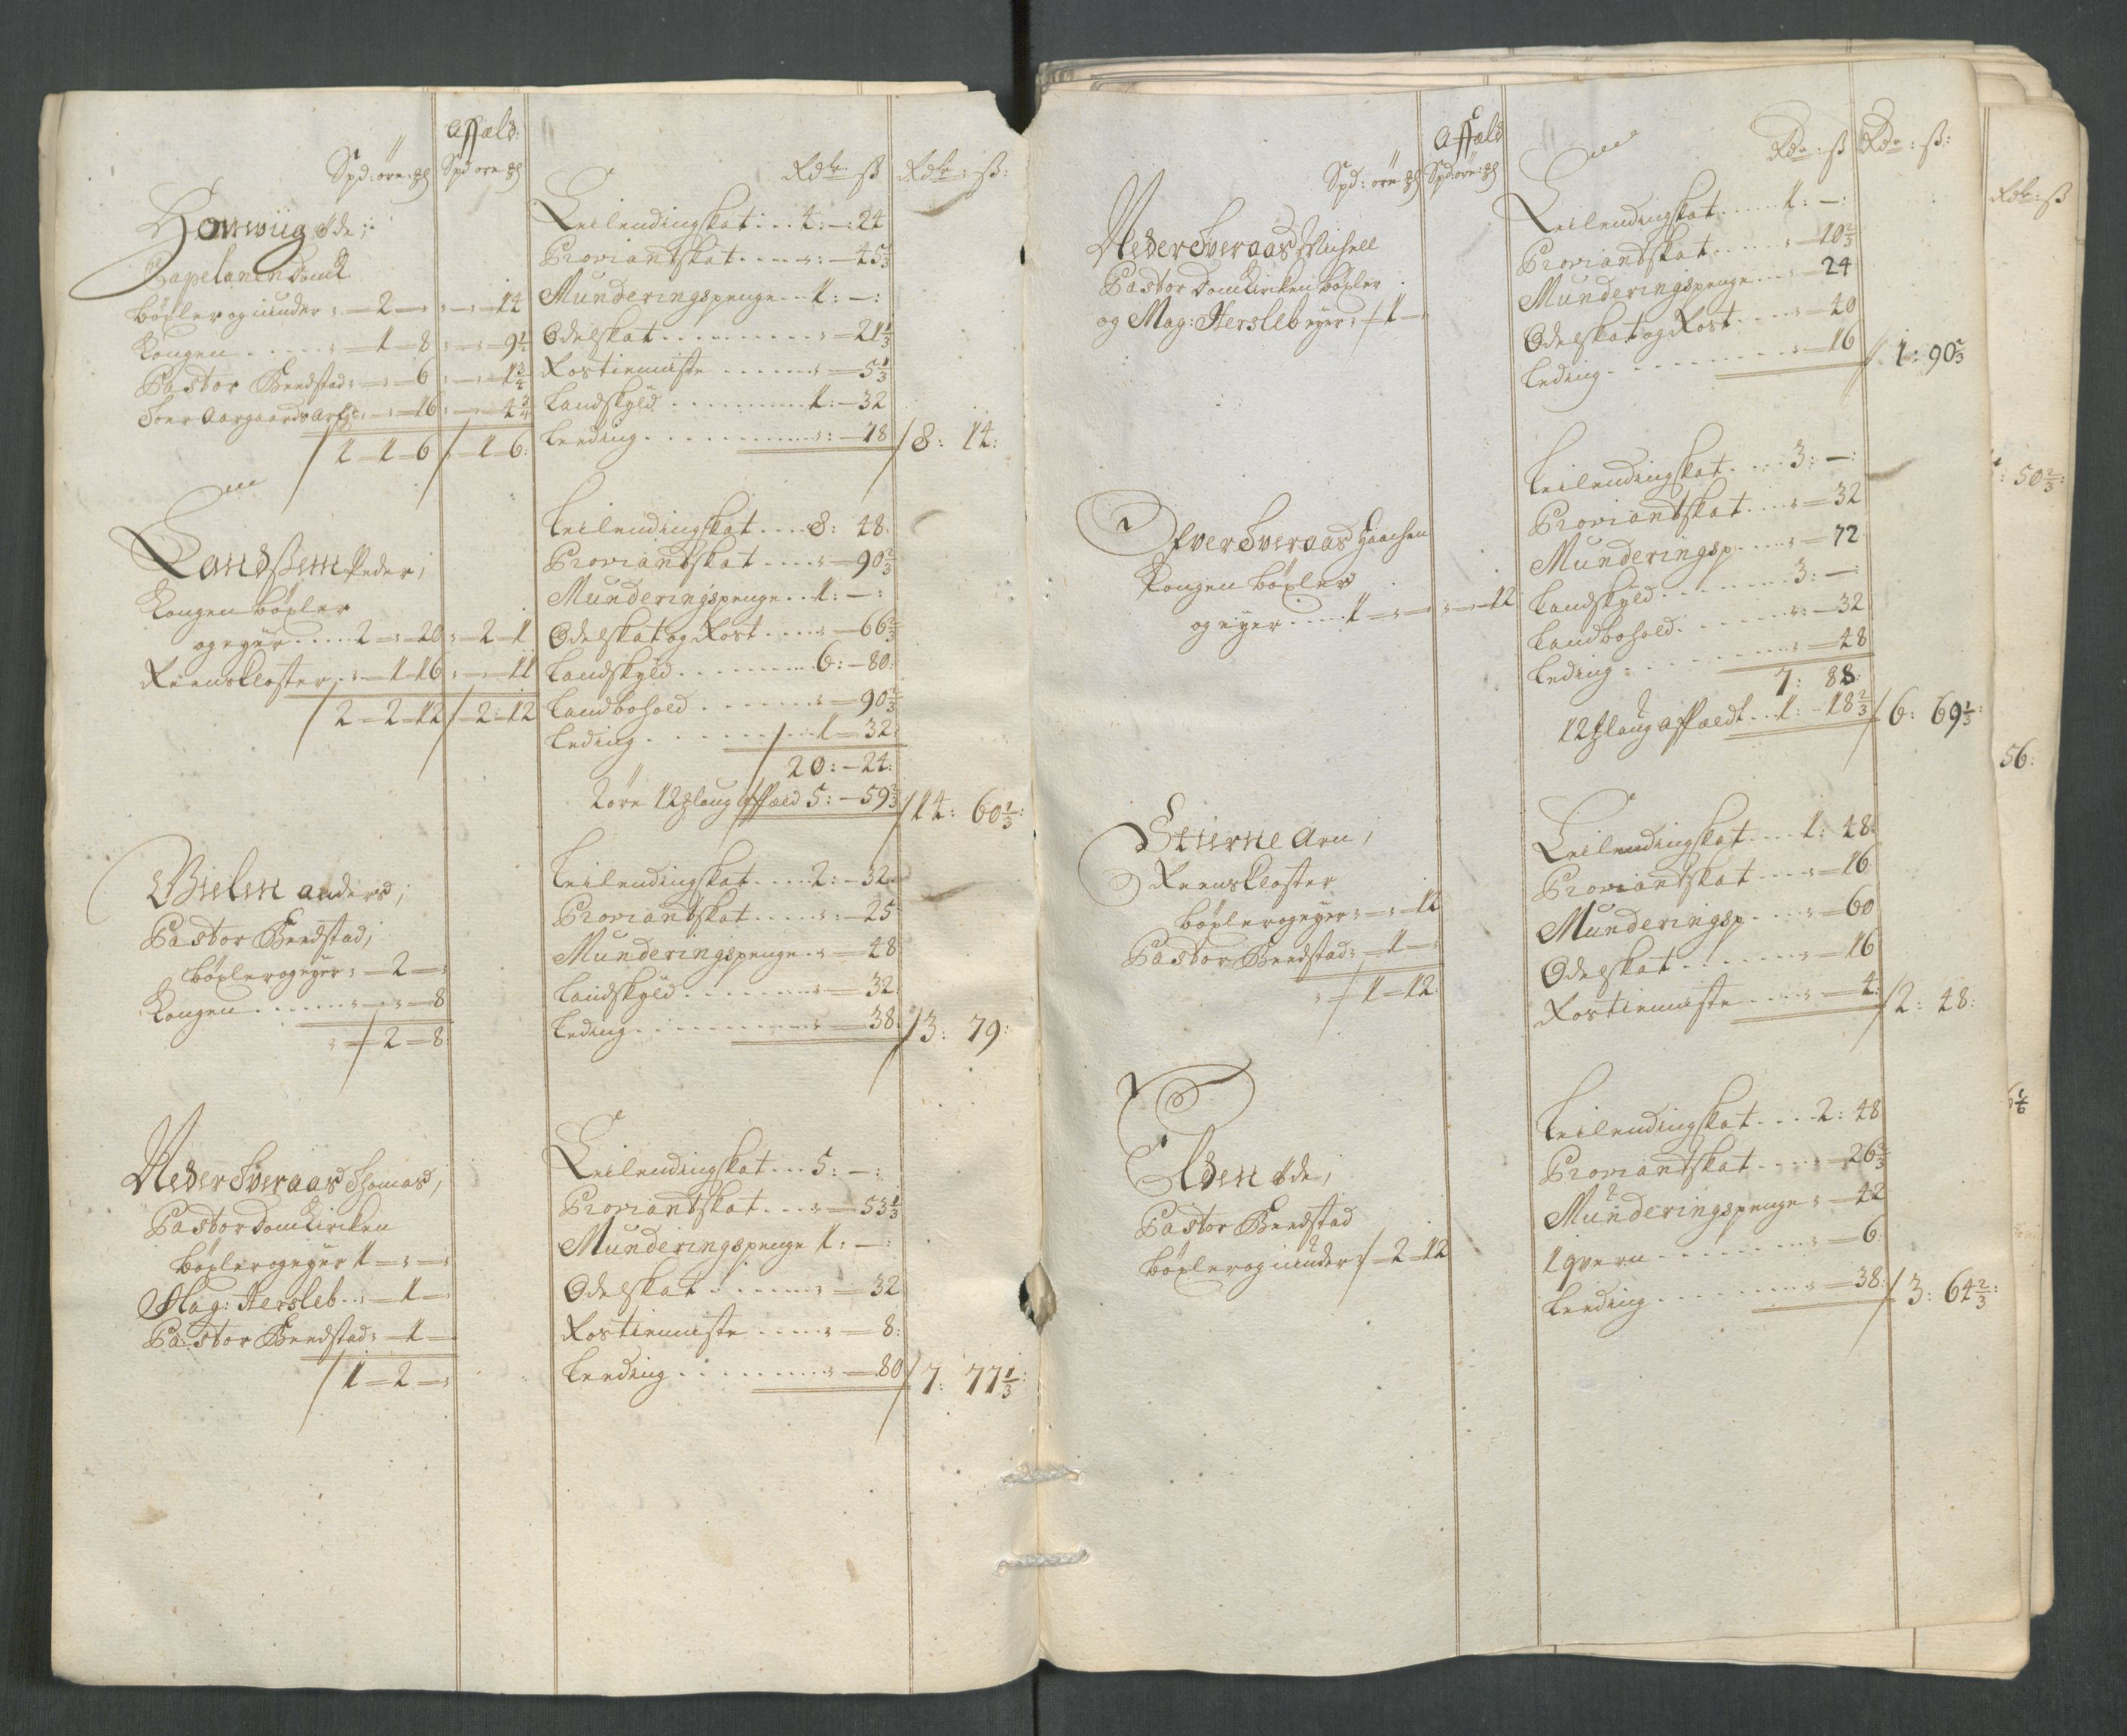 Affæld:
Spd: öre: ₰ Spd öre ₰ Rdlr ß Rdlr: ß:
Homviig Øde;
Capelanen Domk
böxler og under " 2 — " — 14
Kongen . . . . " 1 — 8 " — " 9½
Pastor Bredstad: " — " 6 " — 1¾
Soer Aargaards Arfg: " — 16 " — 4¾
1 — 1 — 6 " — 1 — 6:
Leilendingskat . . . 4: — 24
Proviantskat . . . . " — 45⅓
Munderingspenge . . 1: —:
Odelskat . . . . . . " — 21⅓
Rostienniste . . . . " — 5⅓
Landskyld . . . . . 1: — 32
Leeding . . . . . . " — 18 8: 14:
Landßem Peder;
Kongen böxler
og eyer . . . . 2 — " 20 " — 2 — 1
Reens Closter . " — 1 — 16 " — " 11
2 — 2 — 12 — 2 — 12
Leilendingskat . . . . 8: 48:
Proviantskat . . . . " — 90⅔
Munderingspenge . . 1: —:
Odelskat og Rost . . . . " — 66⅔
Landskyld . . . . . . 6: — 80:
Landbohold . . . . . " — 90⅔
Leding . . . . . . 1 — 32:
20: — 24:
2 öre 12 ₰ laug Affæld 5: — 59⅔ 14: 60⅓:
Bielen Anders;
Pastor Bredstad;
böxler og eyer " — 2 — "
Kongen . . . . . " — " — 8
" — 2 — 8:
Leilendingskat . . . . 2: — 32
Proviantskat . . . . . " — 25
Munderingspenge . " — 48
Landskyld . . . . . . " — 32:
Leding . . . . . . . " — 38: 3: 79:
Neder Sveraas Thomas;
Pastor Domkircken
böxler og eyer 1 — " — "
Mag: Hersleb . . " — 1 — "
Pastor Bredstad: " — 1 —
1 — 2 — "
Leilendingskat . . . 5: —:
Proviantskat . . . " — 53⅓
Munderingspenge 1: —:
Odelskat . . . . . . " — 32
Rostienniste . . . . " — 8:
Leeding . . . . . . . " — 80 7: 77⅓:
Affæld
Spd: öre ₰ Spd: öre: ₰ Rdr: ß Rdr: ß:
Neder Sveraas Michell
Pastor Domkircken böxler
og Mag: Hersleb eyer " 1 —
Leilendingskat . . . . . 1: —:
Proviantskat . . . . . " — 10⅔
Munderingspenge . . . " — 24
Odelskat og Rost . . . . " — 40
Leding . . . . . . . . " — 16 1: 90⅔
Ofver Sveraas Haachen
Kongen böxler
og eyer . . . . . 1 — " — " — " — 12
Leilendingskat . . . . 3: —:
Proviantskat . . . . " — 32
Munderingsp . . . . " — 72
Landskyld . . . . . . . 3: —:
Landbohold . . . . . . " — 32
Leding . . . . . . . . " — 48
7: 88:
12 ₰ laug Affældt . . 1: — 18⅔ 6: 69⅓:
Stierne Arn;
Reens Closter
böxler og eyer " — " — 12
Pastor Bredstad: — 1 — "
" — 1 — 12:
Leilendingskat . . . . 1: 48:
Proviantskat . . . . " — 16
Munderingsp . . . . " — 60
Odelskat . . . . . . . " — 16
Rostienniste . . . . " — 4: 2: 48:
Elden Øde;
Pastor Bredstad
böxler og under: — 2 — 12
Leilendingskat . . . . 2: 48
Proviantskat . . . . " — 26⅔
Munderingspenge " — 42
1 qvern . . . . . . . . " — 6:
Leeding . . . . . . . . " — 38: 3: 64⅔:
Rdlr: ß
: 50⅔:
56: